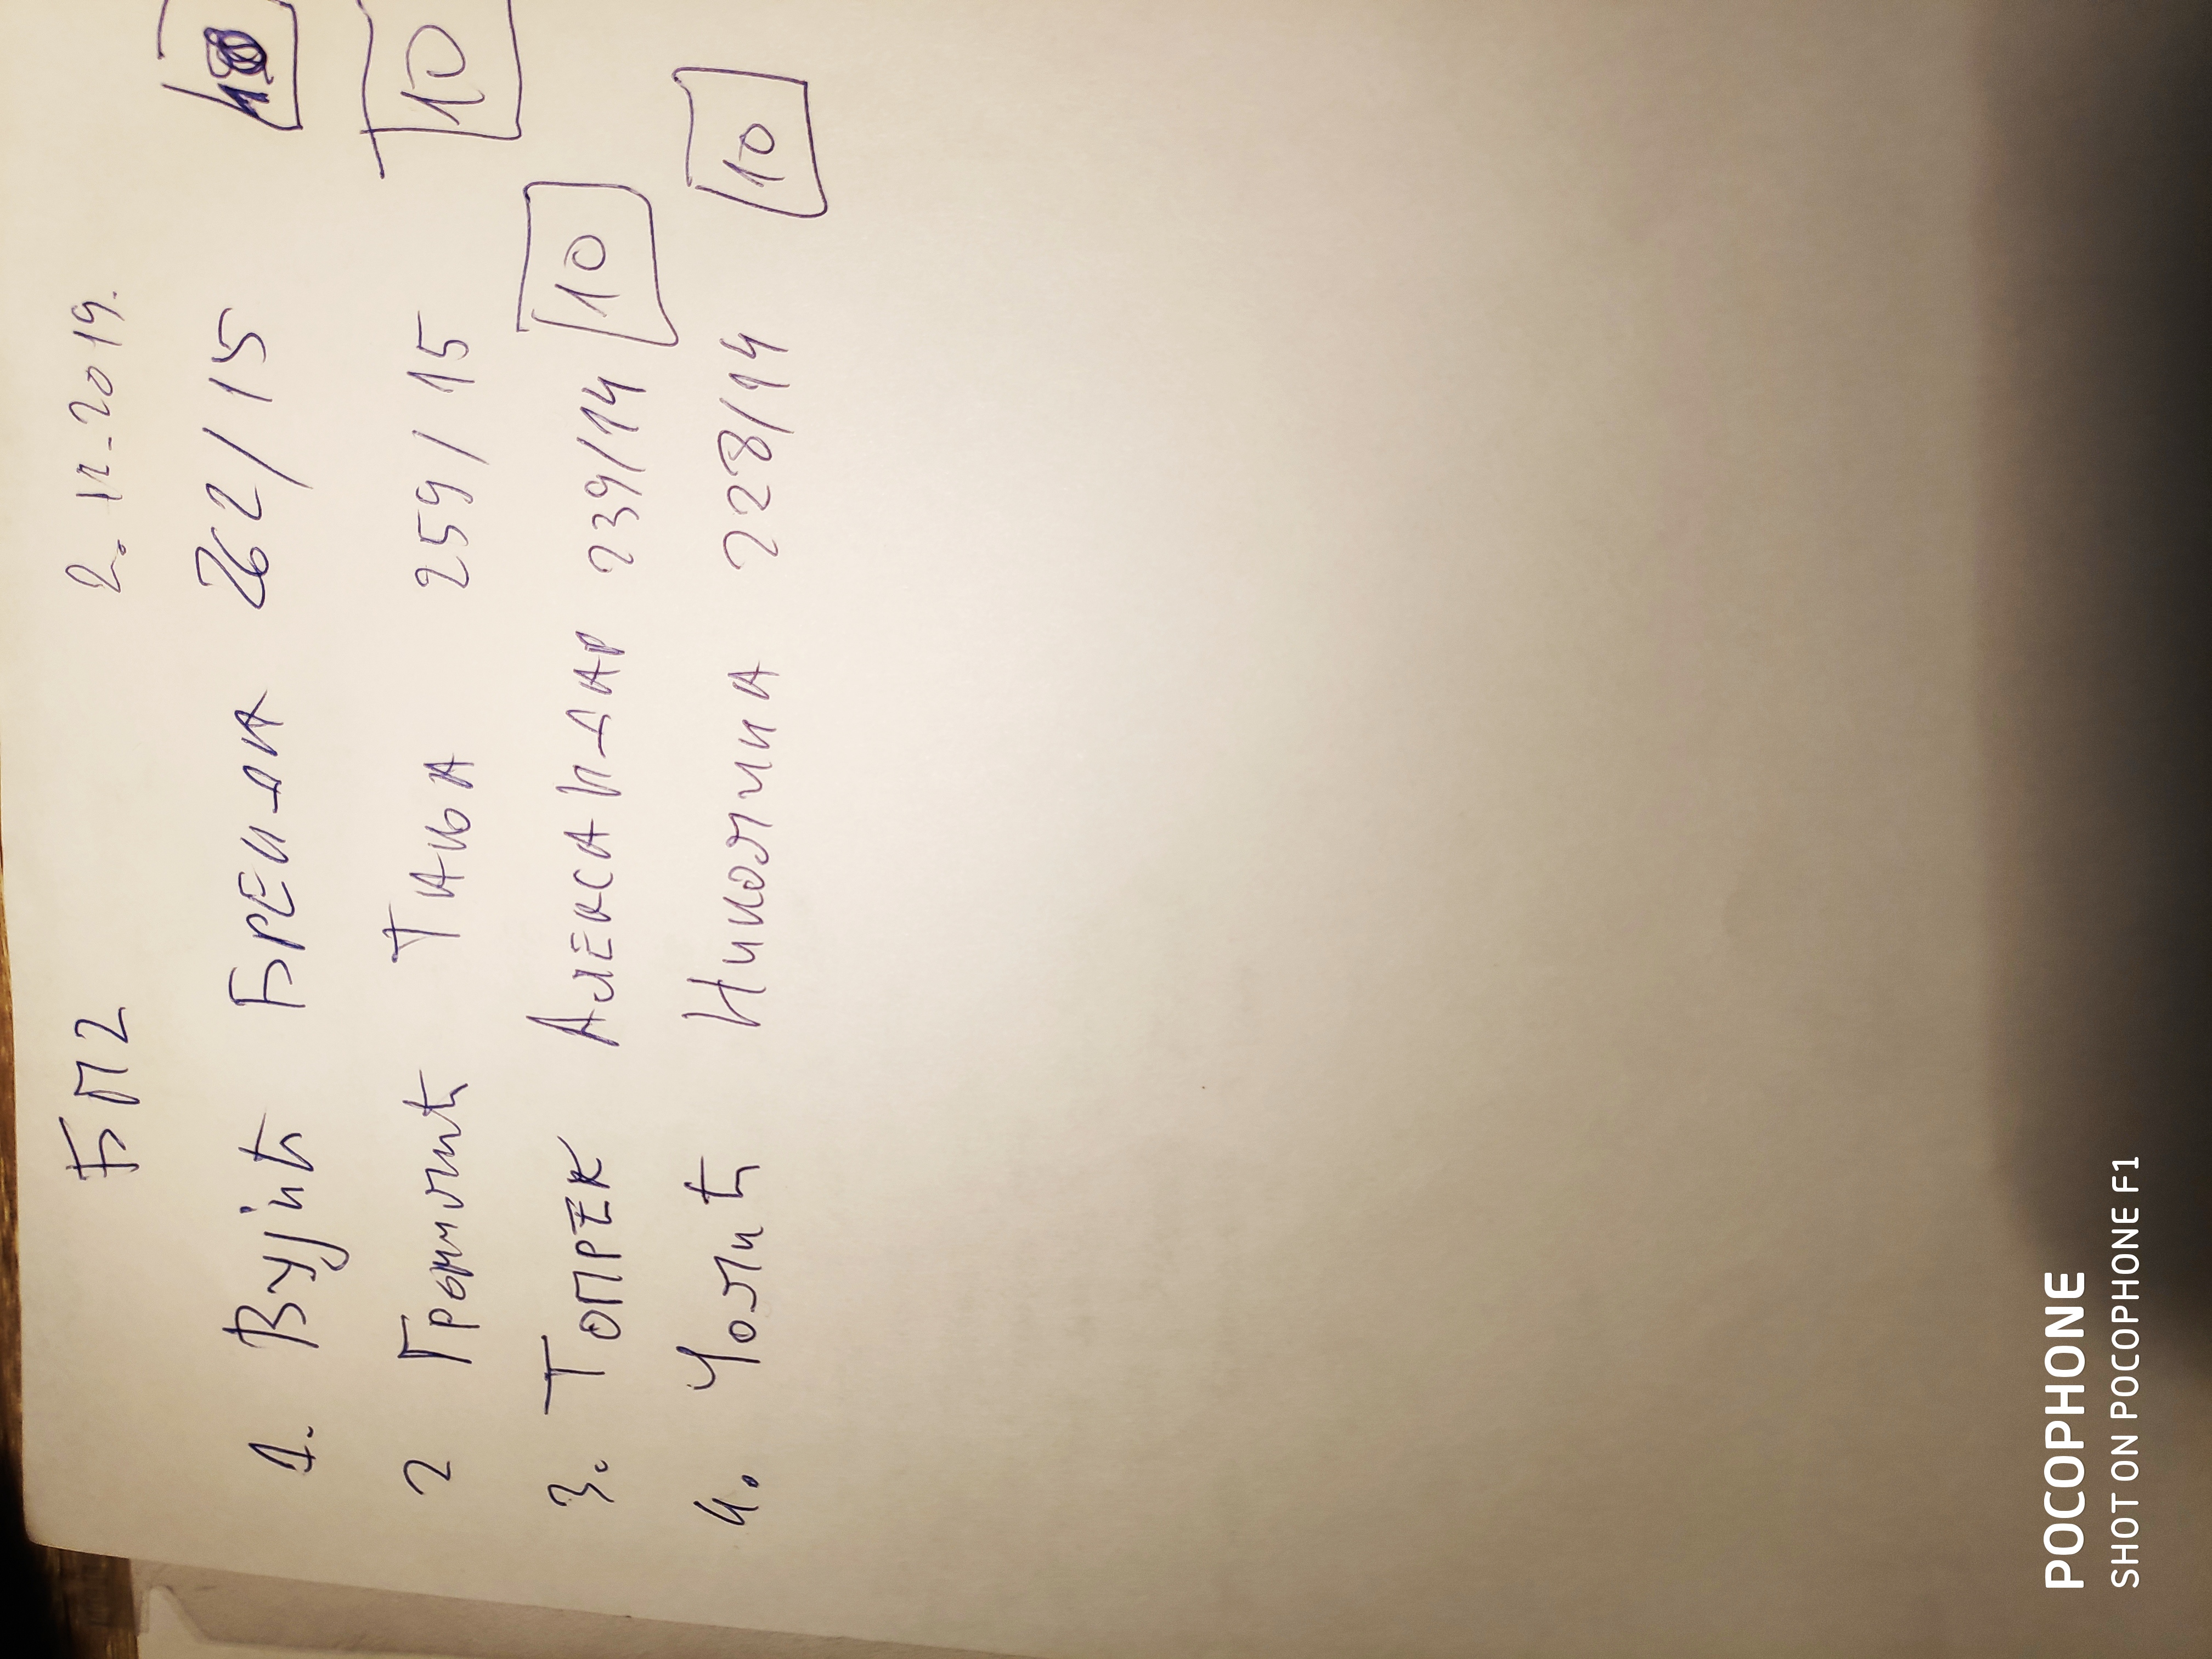 БП2 2. 12. 2019.
1. Вујић БРЕНДА 262/15
2 Тања 259/15 10
3. ТОПРЕК АЛЕКСАНДАР 239/14 10
4. Чолић Николина 228/14 10
POCOPHONE
SHOT ON POCOPHONE F1